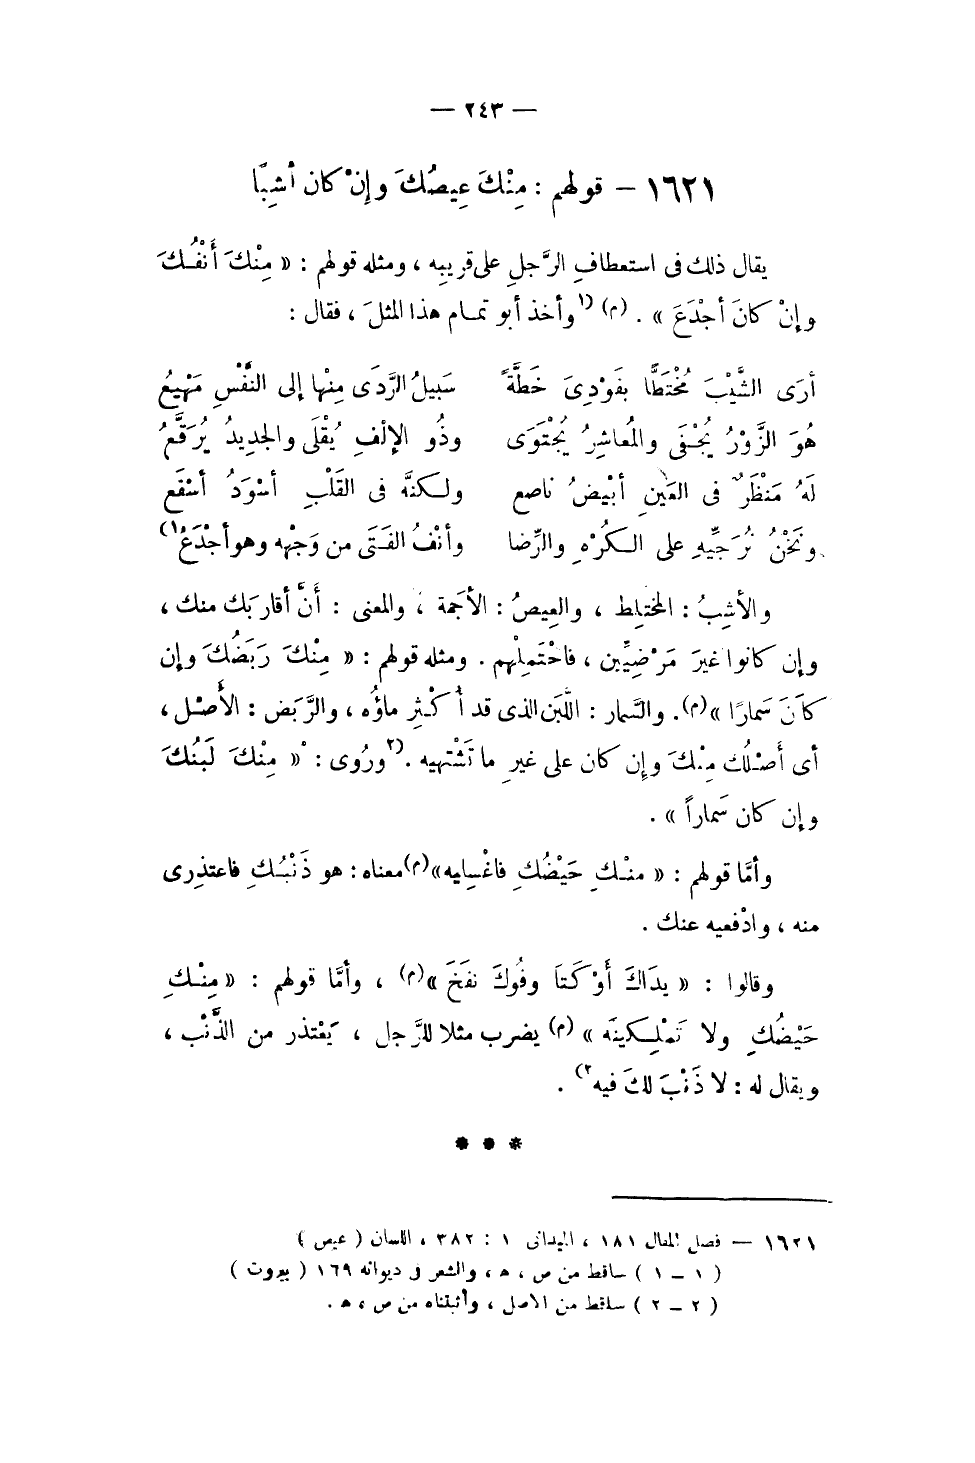 — ٢٤٣ —
١٦٢١ – قولهم : مِنْكَ عِيصُكَ وإِنْ كان أشِبًا
يقال ذلك فى استعطافِ الرَّجلِ على قريبِه ، ومثله قولهم : « مِنْكَ أَنْفُـكَ
وإنْ كانَ أجْدَعَ » . (م) (١وأخذ أبو تمـام هذا المثلَ ، فقال :
أرَى الشَّيْبَ مُخْتَطًّا بفَوْدِىَ خَطَّةً سَبيلُ الرَّدَى مِنْها إلى النَّفْسِ مَهْيعُ
هُوَ الزَّوْرُ يُجْـفَى والمُعاشِرُ يُجْتَوَى وذُو الإلْفِ يُقْلَى والجديدُ يُرَقَّعُ
لَهُ مَنْظَرٌ فى العَيْنِ أبْيضُ ناصع ولـكنَّه فى القَلْبِ أسْوَدُ أسْفَع
ونَحْنُ نُرَجِّيهِ على الـكُرْهِ والرِّضا وأنْفُ الفَـتَى من وَجْهِه وهو أجْدَعُ١)
والأشِبُ : المختلِط ، والعِيصُ : الأجَمة ، والمعنى : أنَّ أقاربَك منك ،
وإن كانوا غيرَ مَرْضيِّين ، فاحْتَمِلْهم . ومثله قولهم : « مِنْكَ رَبَضُكَ وإن
كانَ سَمارًا »(م). والسَّمار : اللَّبَن الذى قد أُكْـثِر ماؤُه ، والرَّبَض : الأَصْـل ،
أى أَصْـلُك مِنْـكَ وإِن كان على غيرِ ما تَشْتهيه . (٢ورُوى : « مِنْكَ لَبَنُكَ
وإن كان سَماراً » .
وأمَّا قولهم : « منـْكِ حَيْضُكِ فاغْسِليه»(م)معناه : هو ذَنْبُـكِ فاعتذِرى
منه ، وادْفعيه عنك .
وقالوا : « يدَاكَ أَوْكَـتَا وفُوكَ نفَخَ »(م) ، وأمَّا قولهم : « مِنْـكِ
حَيْضُكِ ولا تَمْلِـكينَه » (م) يضرب مثلا للرَّجل ، يَعْتذر من الذَّنْب ،
ويقال له : لا ذَنْبَ لكَ فيه٢) .
* * *
١٦٢١ — فصل المقال ١٨١ ، الميدانى ١ : ٣٨٢ ، اللسان ( عيص )
( ١ – ١ ) ساقط من ص ، هـ ، والشعر فى ديوانه ١٦٩ ( بيروت )
( ٢ – ٢ ) ساقط من الأصل ، وأثبتناه من ص ، هـ .